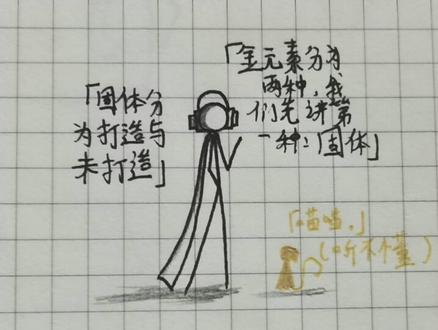 「金元素分为
两种，我
们先讲第
一种：固体」
「固体分
为打造与
未打造」
「喵喵。」
（听不懂）